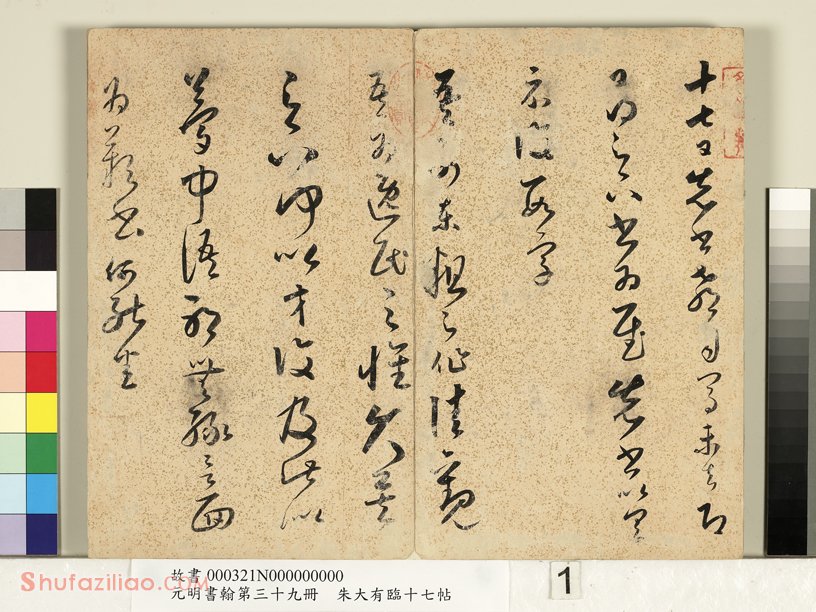 十七日先書郗司馬未去即
日得足下書為慰先書以具
示復數字
吾前東粗足作佳觀
吾為逸民之懷久矣
足下何以等復及此似
夢中語耶無緣言面
為歎書何能悉
故書 000321N000000000
元明書翰第三十九冊 朱大有臨十七帖
1
Shufaziliao.com